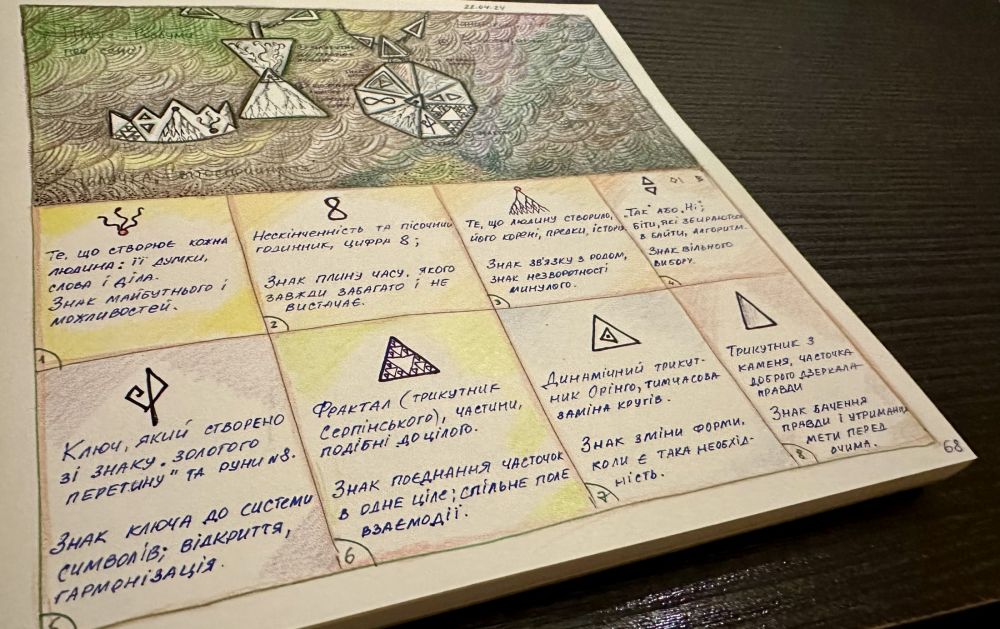 22.04.24
Те, що створює кожна
людина: її думки,
слова і діла.
Знак майбутнього і
можливостей.
1
Нескінченність та пісочний
годинник, цифра 8;
Знак плину часу, якого
завжди забагато і не
вистачає.
2
Те, що людину створило,
його корені, предки, історія
Знак зв'язку з родом,
знак незворотності
минулого.
3
„Так" або „Ні";
біти, які збираються
в байти, алгоритм.
Знак вільного
вибору.
4
Ключ, який створено
зі знаку „золотого
перетину" та руни №8.
Знак ключа до системи
символів; відкриття,
гармонізація.
5
Фрактал (трикутник
Серпінського), частини,
подібні до цілого.
Знак поєднання часточок
в одне ціле; спільне поле
взаємодії.
6
Динамічний трикут-
ник Орінго, тимчасова
заміна кругів.
Знак зміни форми,
коли є така необхід-
ність.
7
Трикутник з
каменя, часточка
доброго дзеркала
правди
Знак бачення
правди і утримання
мети перед
очима.
8
68